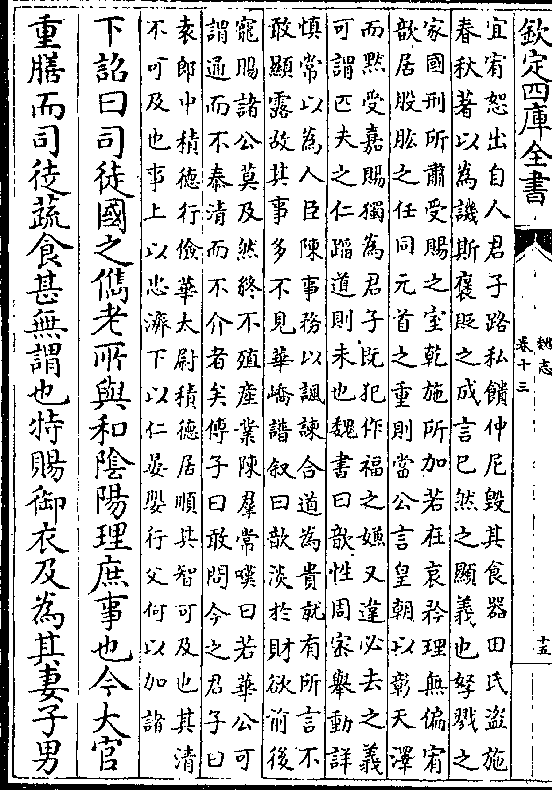 欽定四庫全書
魏志
卷十三
十五
宜宥恕出自人君子路私饋仲尼毀其食器田氏盜施
春秋著以為譏斯襃貶之成言已然之顯義也孥戮之
家國刑所肅受賜之室乾施所加若在哀矜理無偏宥
歆居股肱之任同元首之重則當公言皇朝以彰天澤
而黙受嘉賜獨為君子既犯作福之嫌又違必去之義
可謂匹夫之仁蹈道則未也魏書曰歆性周密舉動詳
慎常以為人臣陳事務以諷諫合道為貴就有所言不
敢顯露故其事多不見華嶠譜叙曰歆淡於財欲前後
寵賜諸公莫及然終不殖產業陳羣常嘆曰若華公可
謂通而不泰清而不介者矣傅子曰敢問今之君子曰
袁郎中積德行儉華太尉積德居順其智可及也其清
不可及也事上以忠濟下以仁晏嬰行父何以加諸
下詔曰司徒國之儁老所與和陰陽理庶事也今大官
重膳而司徒蔬食甚無謂也特賜御衣及為其妻子男